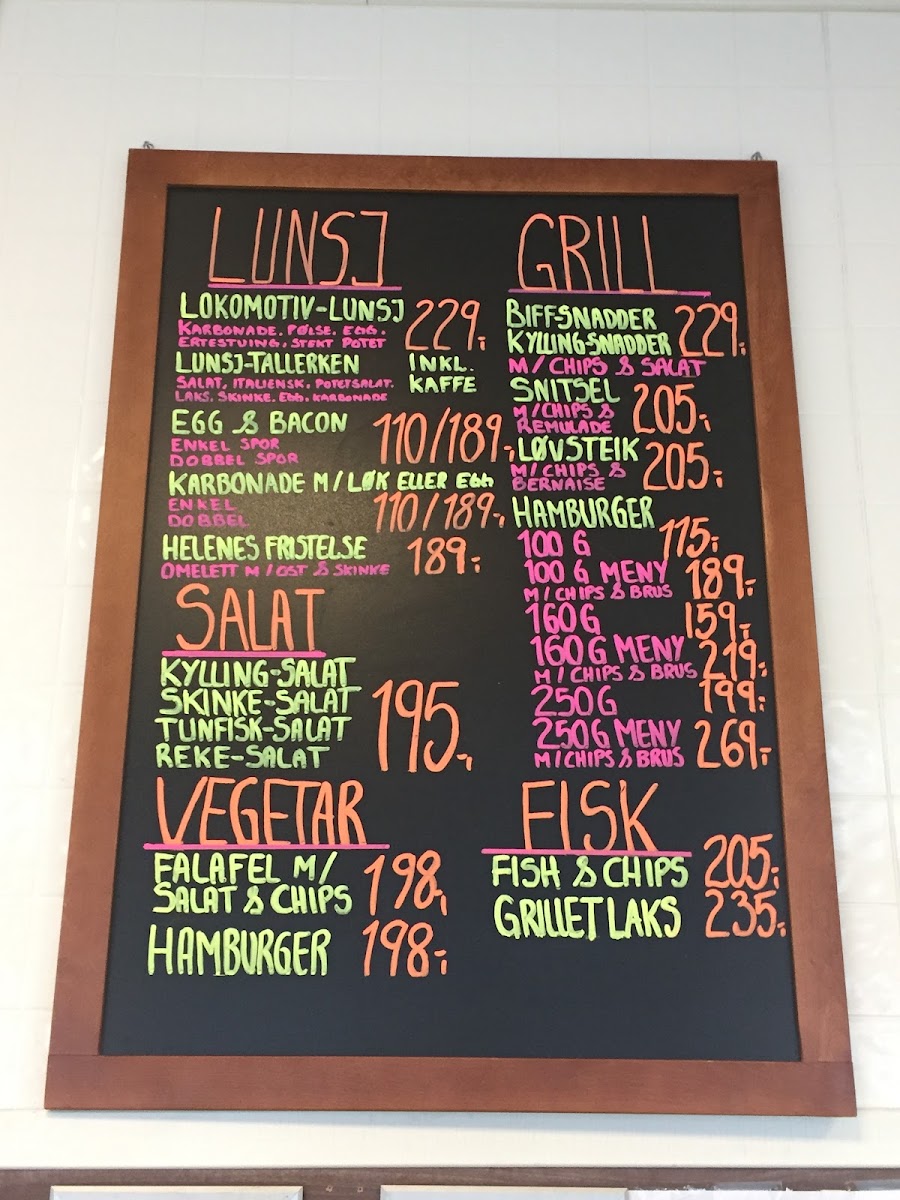 LUNSJ
LOKOMOTIV-LUNSJ 229,-
KARBONADE, PØLSE, EGG,
ERTESTUING, STEKT POTET
LUNSJ-TALLERKEN INKL.
KAFFE
SALAT, ITALIENSK, POTETSALAT,
LAKS, SKINKE, EGG, KARBONADE
EGG & BACON 110/189,-
ENKEL SPOR
DOBBEL SPOR
KARBONADE M/LØK ELLER EGG
ENKEL 110/189,-
DOBBEL
HELENES FRISTELSE 189,-
OMELETT M/OST & SKINKE
SALAT
KYLLING-SALAT
SKINKE-SALAT
TUNFISK-SALAT 195,-
REKE-SALAT
VEGETAR
FALAFEL M/
SALAT & CHIPS 198,
HAMBURGER 198,-
GRILL
BIFFSNADDER 229,-
KYLLING-SNADDER
M/CHIPS & SALAT
SNITSEL 205,-
M/CHIPS &
REMULADE
LØVSTEIK 205,-
M/CHIPS &
BERNAISE
HAMBURGER
100 G 115,-
100 G MENY 189,-
M/CHIPS & BRUS
160G 159,-
160G MENY 219,-
M/CHIPS & BRUS
250G 199,-
250G MENY 269,-
M/CHIPS & BRUS
FISK
FISH & CHIPS 205,-
GRILLET LAKS 235,-